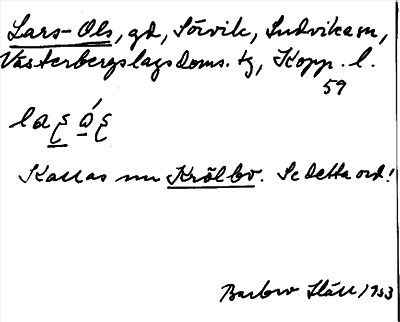 Lars-Ols, gd, Sörvik, Ludvika sn,
Västerbergslags doms. tg, Kopp. l.
59
Kallas nu Krölbo. Se detta ord!
Barbro 1953